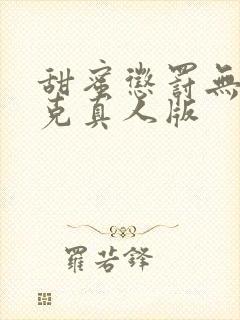 甜蜜懲罰無
克真人版
羅若鋒